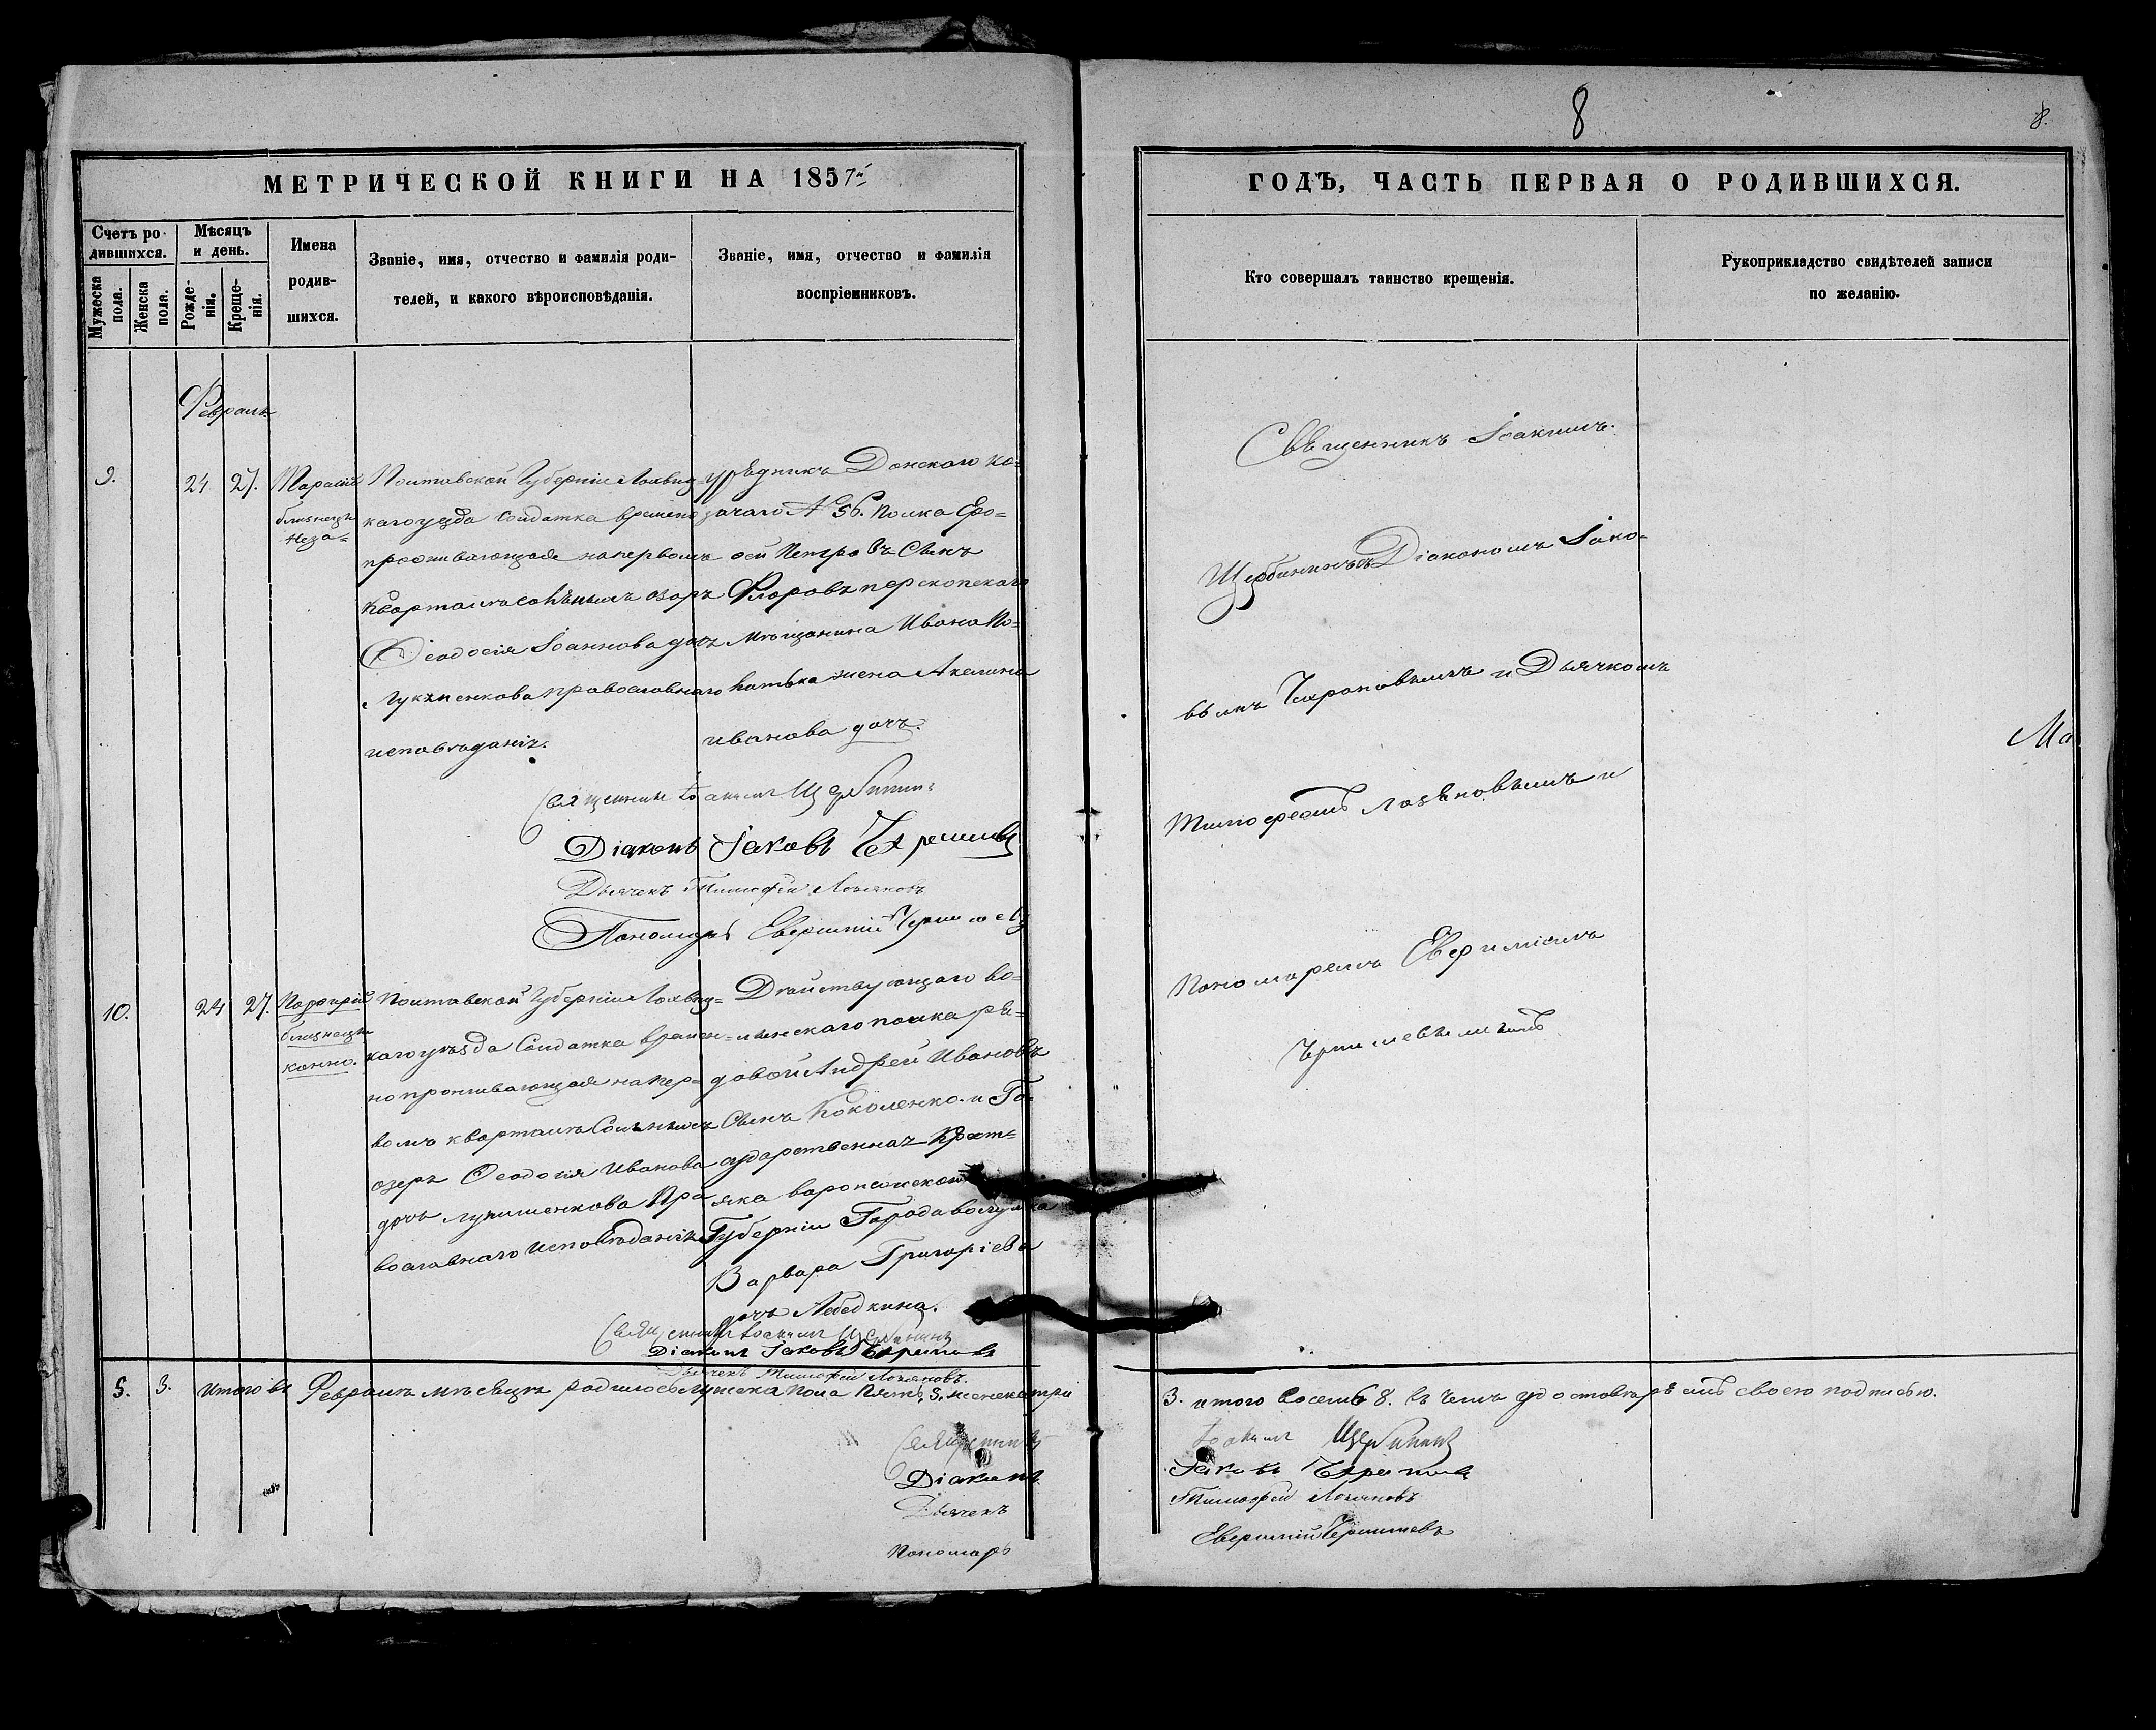 8
8.
МЕТРИЧЕСКОЙ КНИГИ НА 1857й
ГОДЪ, ЧАСТЬ ПЕРВАЯ О РОДИВШИХСЯ.
Счетъ ро-
дившихся.
Мужеска пола.
Женска пола.
Мѣсяцъ
и день.
Рожде-
нія.
Креще-
нія.
Имена
родив-
шихся.
Званіе, имя, отчество и фамилія роди-
телей, и какого вѣроисповѣданія.
Званіе, имя, отчество и фамилія
воспріемниковъ.
Кто совершалъ таинство крещенія.
Рукоприкладство свидѣтелей записи
по желанію.
Февраль
9.
24
27.
близнецъ
неза=
Полтавской Губерніи Лохвиц=
каго уезда Солдатка времено
проживающая напервомъ
Кварталѣ
Феодосія Іоаннова дочь
православнаго
исповѣданія.
урядникъ Донского ка=
зачаго № 56. Полка Еро=
фей Петровъ Сынъ
Фларовъ перекопскаго
мѣщанина Ивана По=
жена Акелина
иванова дочь.
Священникъ Іоакимъ Щербининъ
Діаконъ Іаковъ
Дьячекъ Тимофей Лозяновъ
Пономарь Евфимій
Священникъ Іоакимъ
Щербининъ съ Діакономъ Іако=
вымъ и Дьячкомъ
Тимофеемъ Лозяновымъ и
Пономаремъ Евфиміемъ
Ма
10.
24
27.
Порфирій
близнецъ
конно.
Полтавской Губерніи Лохвиц=
каго уѣзда Солдатка времен=
но проживающая на пер=
вомъ кварталѣ Соленыхъ
озеръ Феодосія Иванова
дочь Лукишенкова Пра
вославнаго исповѣданія
Дѣйствующаго Во=
лынскаго полка ря=
довой Андрей Ивановъ
Сынъ Коколенко. и Го=
сударственная Крест=
янка воронежской
Губерніи Города
Варвара Григоріева
дочь Лебедкина.
Священникъ Іоакимъ Щербининъ
Діаконъ Іаковъ
Дьячекъ Тимофей Лозяновъ.
5.
3.
Итого въ Февралѣ мѣсяцѣ родилось мужска пола Пять, 5. женска три
3. итого восемь 8. въ чемъ удостовѣряемъ своею подписью.
Священникъ Іоакимъ Щербининъ
Діаконъ Іаковъ
Дьячекъ Тимофей Лозяновъ
Пономарь Евфимій